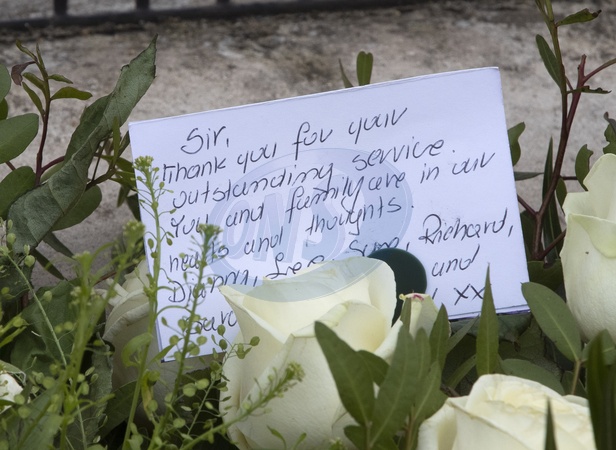 Sir,
Thank you for your
outstanding service.
You and family are in our
hearts and thoughts.
Dianny, Lee, Sime, Richard,
and
xx